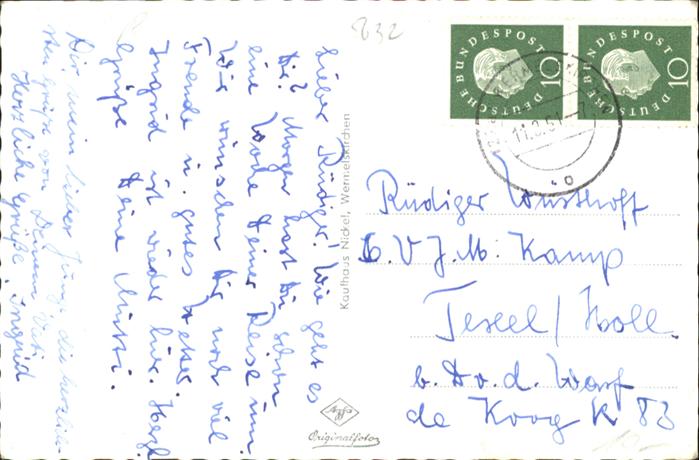 832
DEUTSCHE BUNDESPOST
10
DEUTSCHE BUNDESPOST
10
11.8.61
Lieber Rüdiger! Wie geht es
Dir? Morgen hast Du schon
eine Woche Deiner Reise um.
Wir wünschen Dir noch viel
Freude u. gutes Wetter.
Ingrid ist wieder hier. Herzl.
Grüße Deine Mutti.
Dir, mein lieber Junge die herzlich-
sten Grüße von Deinem Vati
Herzliche Grüße, Ingrid
Kaufhaus Nickel, Wermelskirchen
Rüdiger Wusthoff
C.V.J.M. Kamp
Texel / Holl.
b. D. v. d. Werf
de Koog K 83
Agfa
Originalfoto